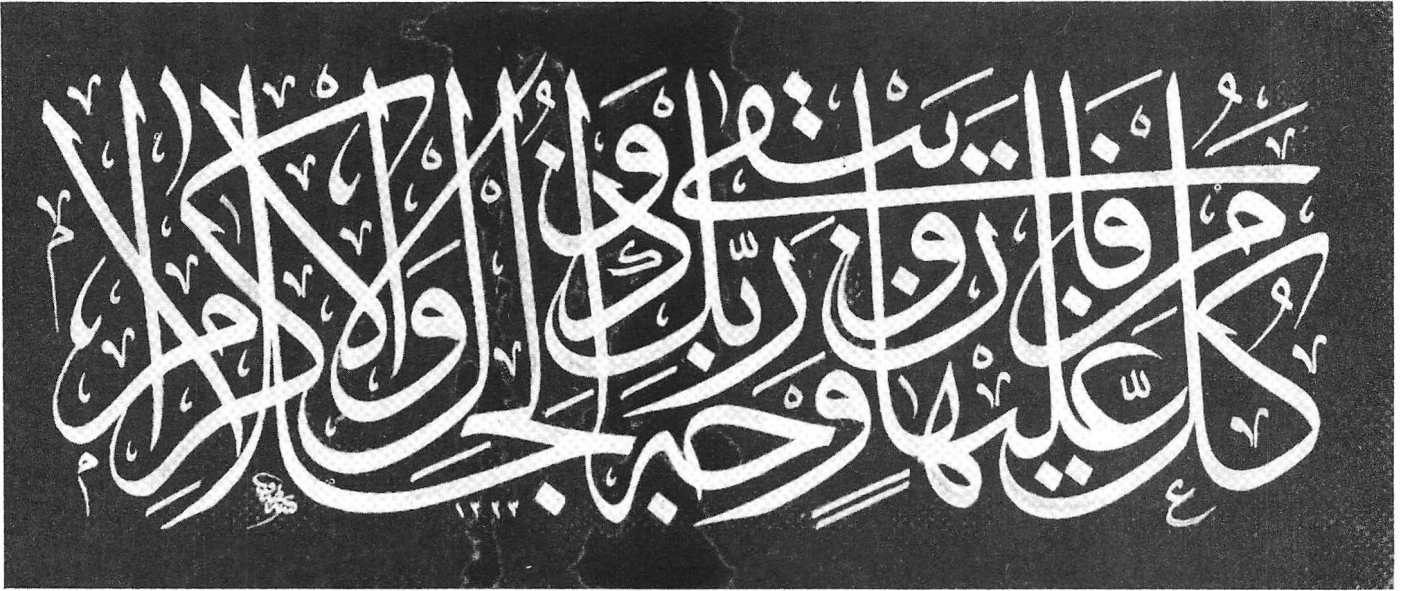 كُلُّ مَنْ عَلَيْهَا فَانٍ وَيَبْقَى وَجْهُ رَبِّكَ ذُو الْجَلَالِ وَالْإِكْرَامِ
١٣٢٣